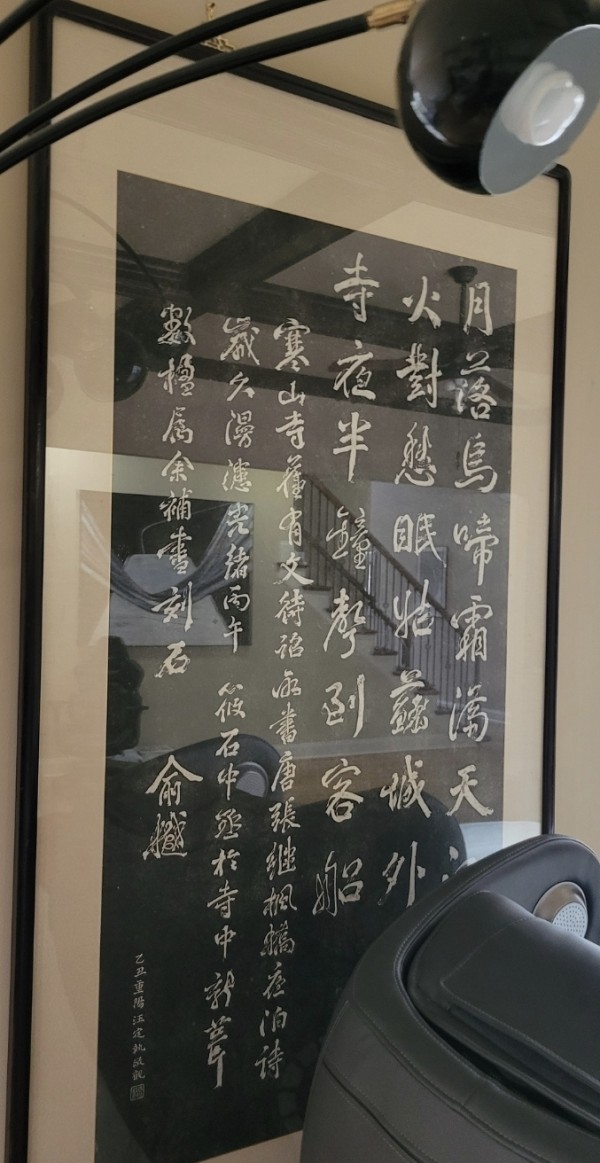 月落烏啼霜滿天
火對愁眠姑蘇城外
寺夜半鐘聲到客船
寒山寺舊有文待詔所書唐張繼楓橋夜泊詩
歲久漫漶光緒丙午筱石中丞於寺中新葺
數楹屬余補書刻石
俞樾
乙丑重陽汪定